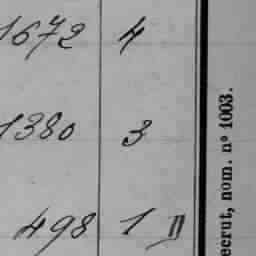 1672 4
1380 3
498 1 II
ecrut, nom. nº 1003.